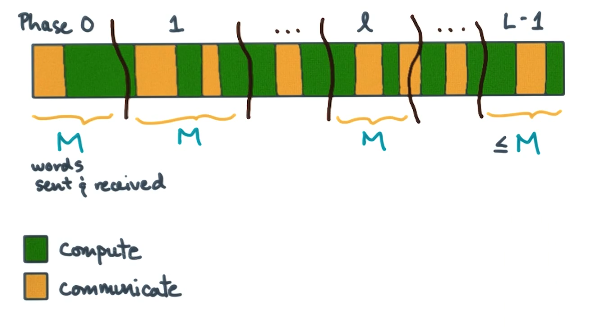 Phase 0 1 ... l ... L-1
M M M ≤ M
words
sent & received
Compute
Communicate